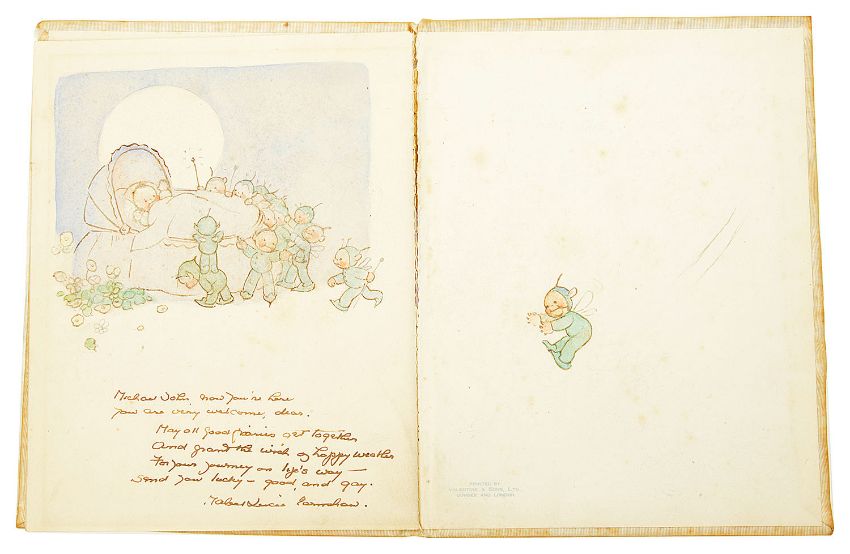 Michael John, now you're here
you are very welcome, dear.
May all good fairies get together
And grant the wish of happy weather
For your journey on life's way —
Send you lucky — good, and gay.
Mabel Lucie
PRINTED BY
VALENTINE & SONS, LTD.
DUNDEE AND LONDON